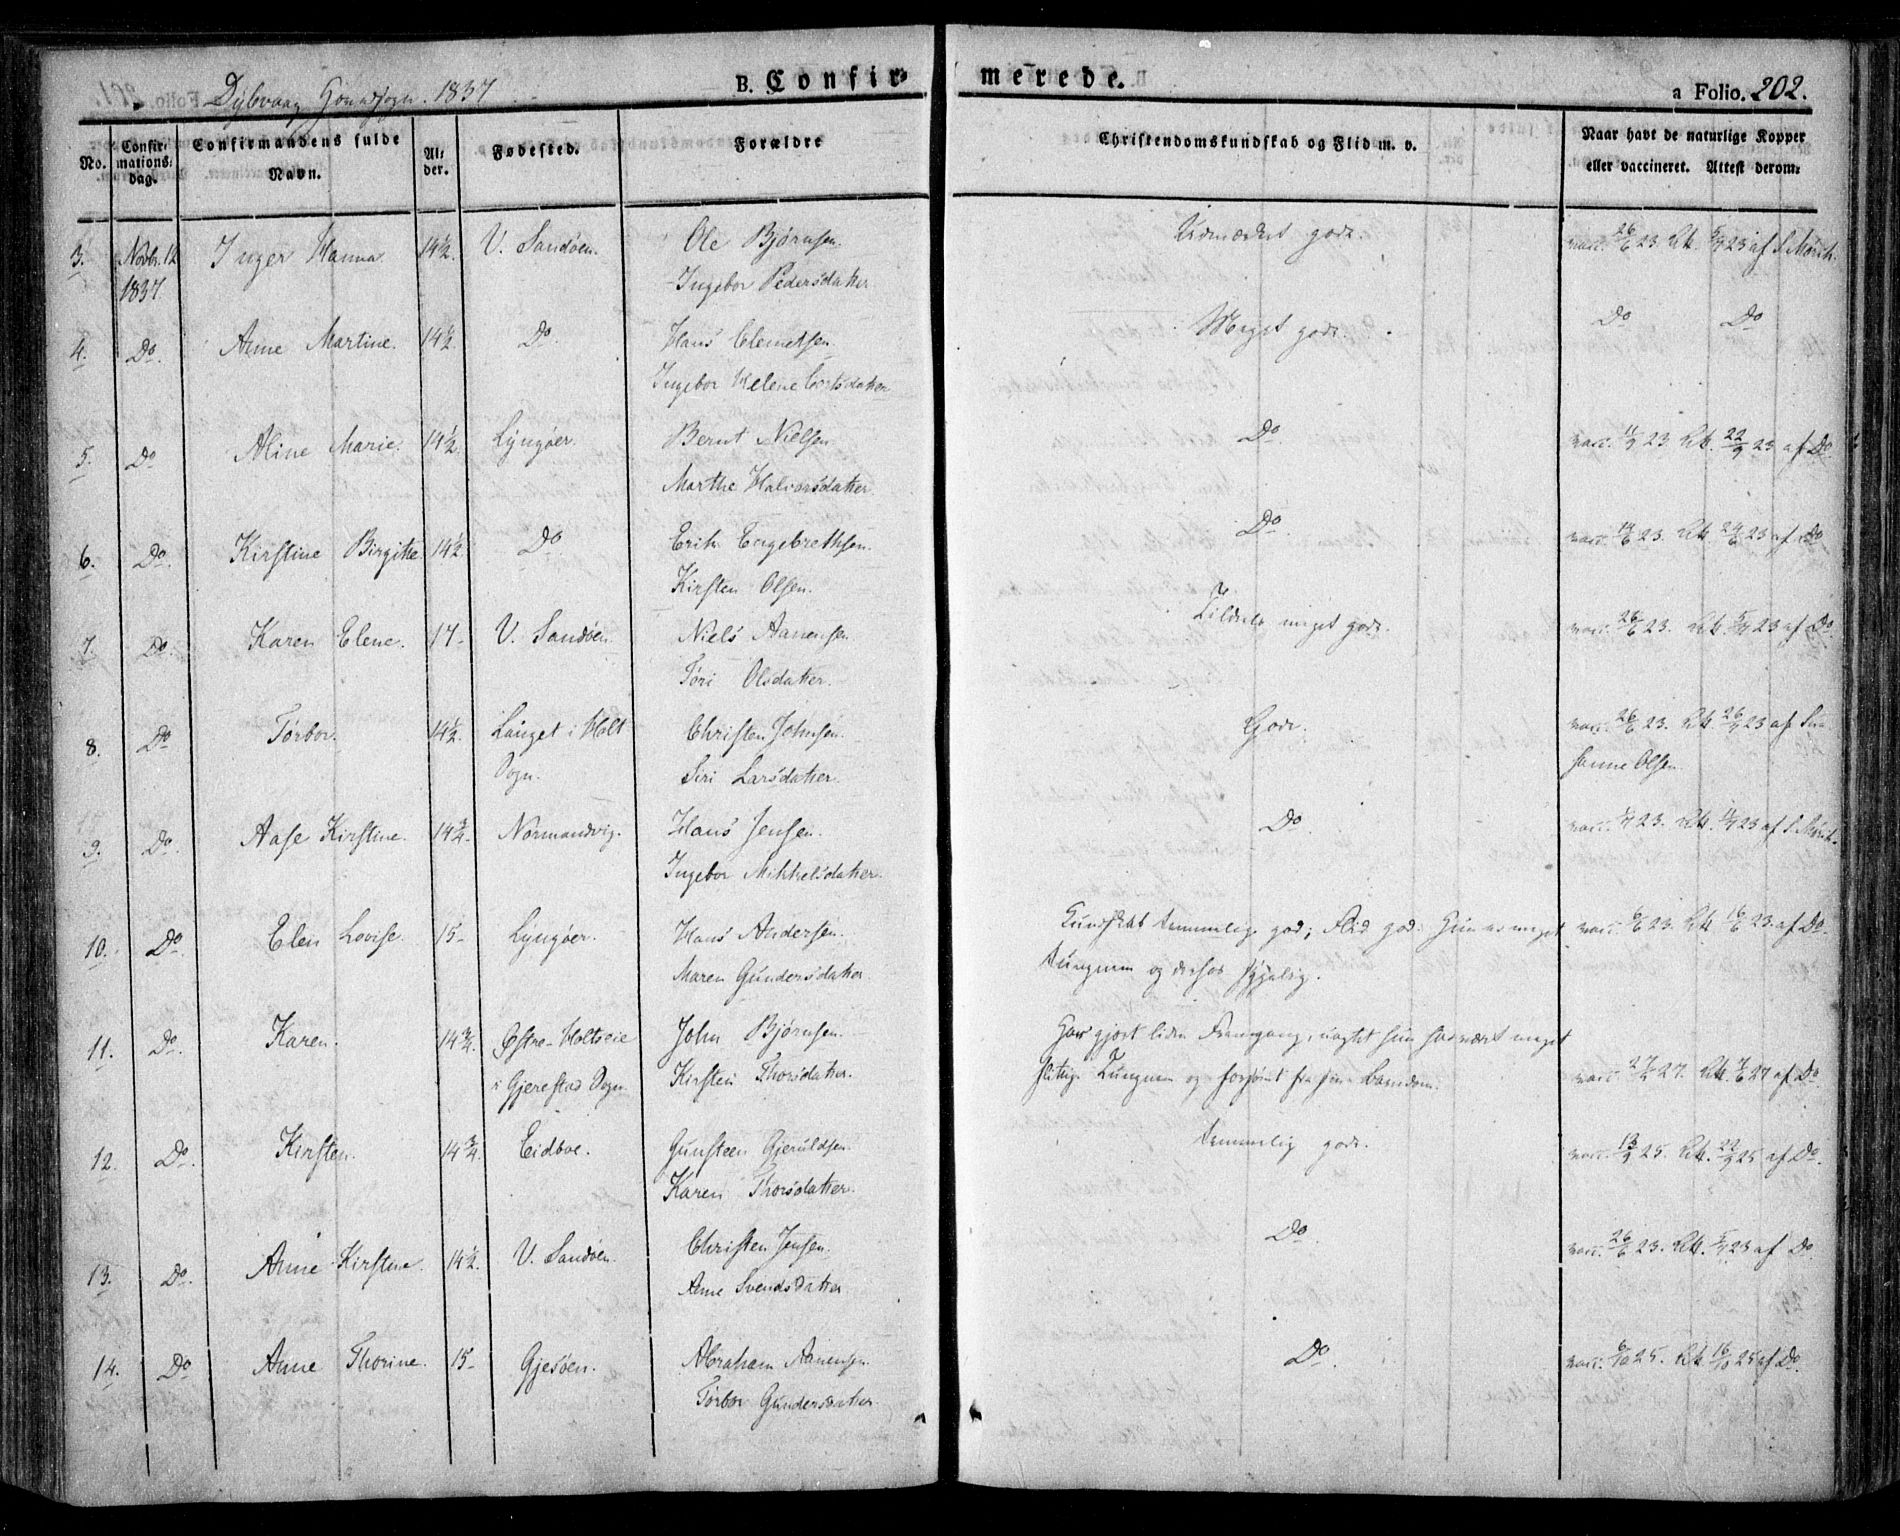 Dybvaag Hovedsogn. 1837
B. Confirmerede.
a Folio. 202.
No.
Confirmations: dag.
Confirmandens fulde Navn.
Alder.
Fødested.
Forældre
Christendomskundskab og Flid m. v.
Naar havt de naturlige Kopper eller vaccineret. Attest derom:
3. Novbr. 12 1837 Inger Hanna 14½. V. Sandøen. Ole Bjørnsen. Udmærket godt. vacc. 26/6 23. Att. 5/7 23 af S. Mørch.
Ingebor Pedersdatter
4. Do. Anne Martine. 14½. Do. Hans Clemetsen Meget godt. Do Do
Ingebor Helene
5. Do Aline Marie. 14½. Lyngøer. Bernt Nielsen Do. vacc. 11/9 23 Att. 22/9 23 af Do
Marthe Halvorsdatter
6. Do. Kirstine Birgitte 14½ Do Erik Engebrethsen. Do. vacc. 14/6 23. Att. 24/6 23 af Do
Kirsten Olsen.
7. Do. Karen Elene. 17- V. Sandøen Niels Aanensen Tildeels meget godt. vacc. 26/6 23. Att. 5/7 23 af Do
Tøri Olsdatter.
8. Do Tørbor. 14½. Langet i Holt Sogn. Christen Johnsen. Godt. vacc. 26/6 23. Att. 26/7 23 af Su-
Siri Larsdatter. sanne Olsen
9. Do. Aase Kirstine. 14¾. Normandvig. Hans Jensen. Do. 23. Att. 23 af S. Mørch.
Ingebor Mikkelsdatter.
10. Do Elen Lovise. 15- Lyngøer. Hans Andersen. Kundskab temmelig god; Flid god. Hun er meget vacc. 6/6 23. Att. 16/6 23. af Do.
Maren Gundersdatter tungnem og derfor
11. Do. Karen. 14¾. Østre-Holtseie Johen Bjørnsen. Har gjort liden Fremgang, uagtet hun har været meget
i Gjerestad Sogn. Kirsten Thorsdatter. flittig. Tungnem og forsømt fra sin Barndom. vacc. 27/4 27. Att. 27 af Do.
12. Do. Kirsten. 14¾. Eidboe. Gunsteen Gjeruldsen. temmelig godt. vacc. 13/9 25. Att. 22/9 25 af Do.
Karen Thorsdatter.
13. Do. Anne Kirstine. 14½. V. Sandøen. Christen Jensen. Do. vacc. 26/6 23. Att. 5/7 23 af Do
Anne Svendsdatter
14. Do Anne Thorine. 15- Gjesøen. Abraham Aanensen. Do. vacc. 6/10 25. Att. 16/10 25 af Do.
Tørbor Gundersdatter